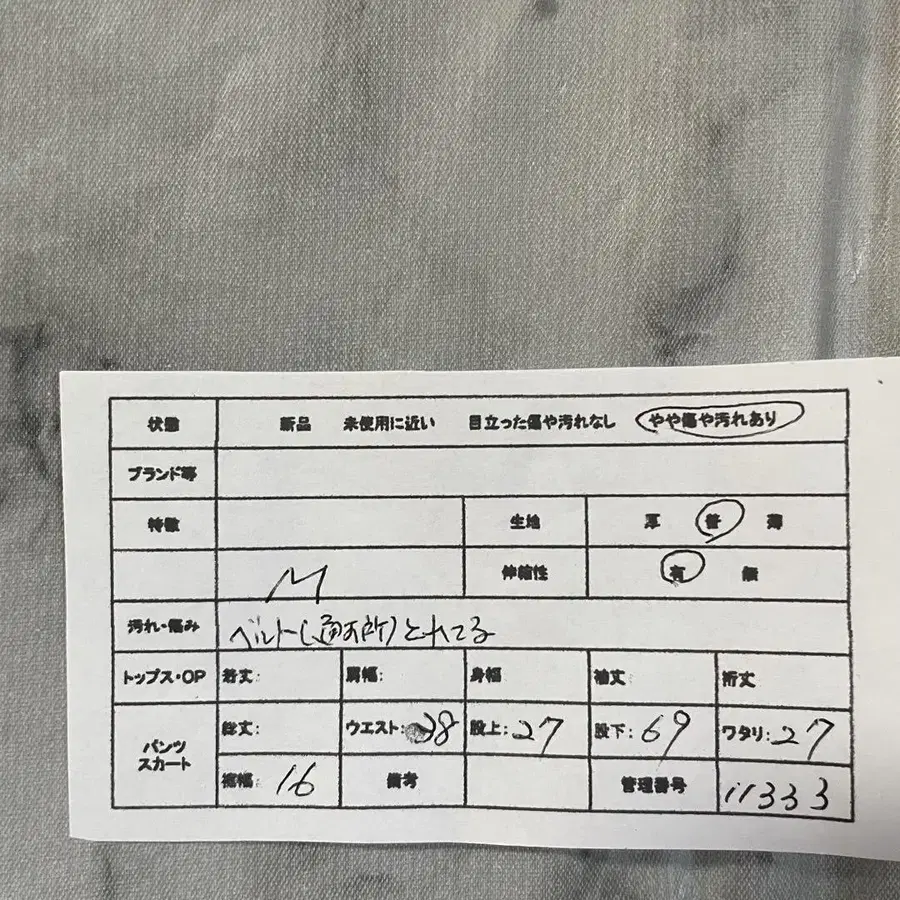 状態 新品 未使用に近い 目立った傷や汚れなし やや傷や汚れあり
ブランド等
特徴 生地 厚 普 薄
M 伸縮性 有 無
汚れ・傷み ベルト(通す所)とれてる
トップス・OP 着丈: 肩幅: 身幅 袖丈 裄丈
パンツ スカート 総丈: ウエスト: 38 股上: 27 股下: 69 ワタリ: 27
裾幅: 16 備考 管理番号 11333